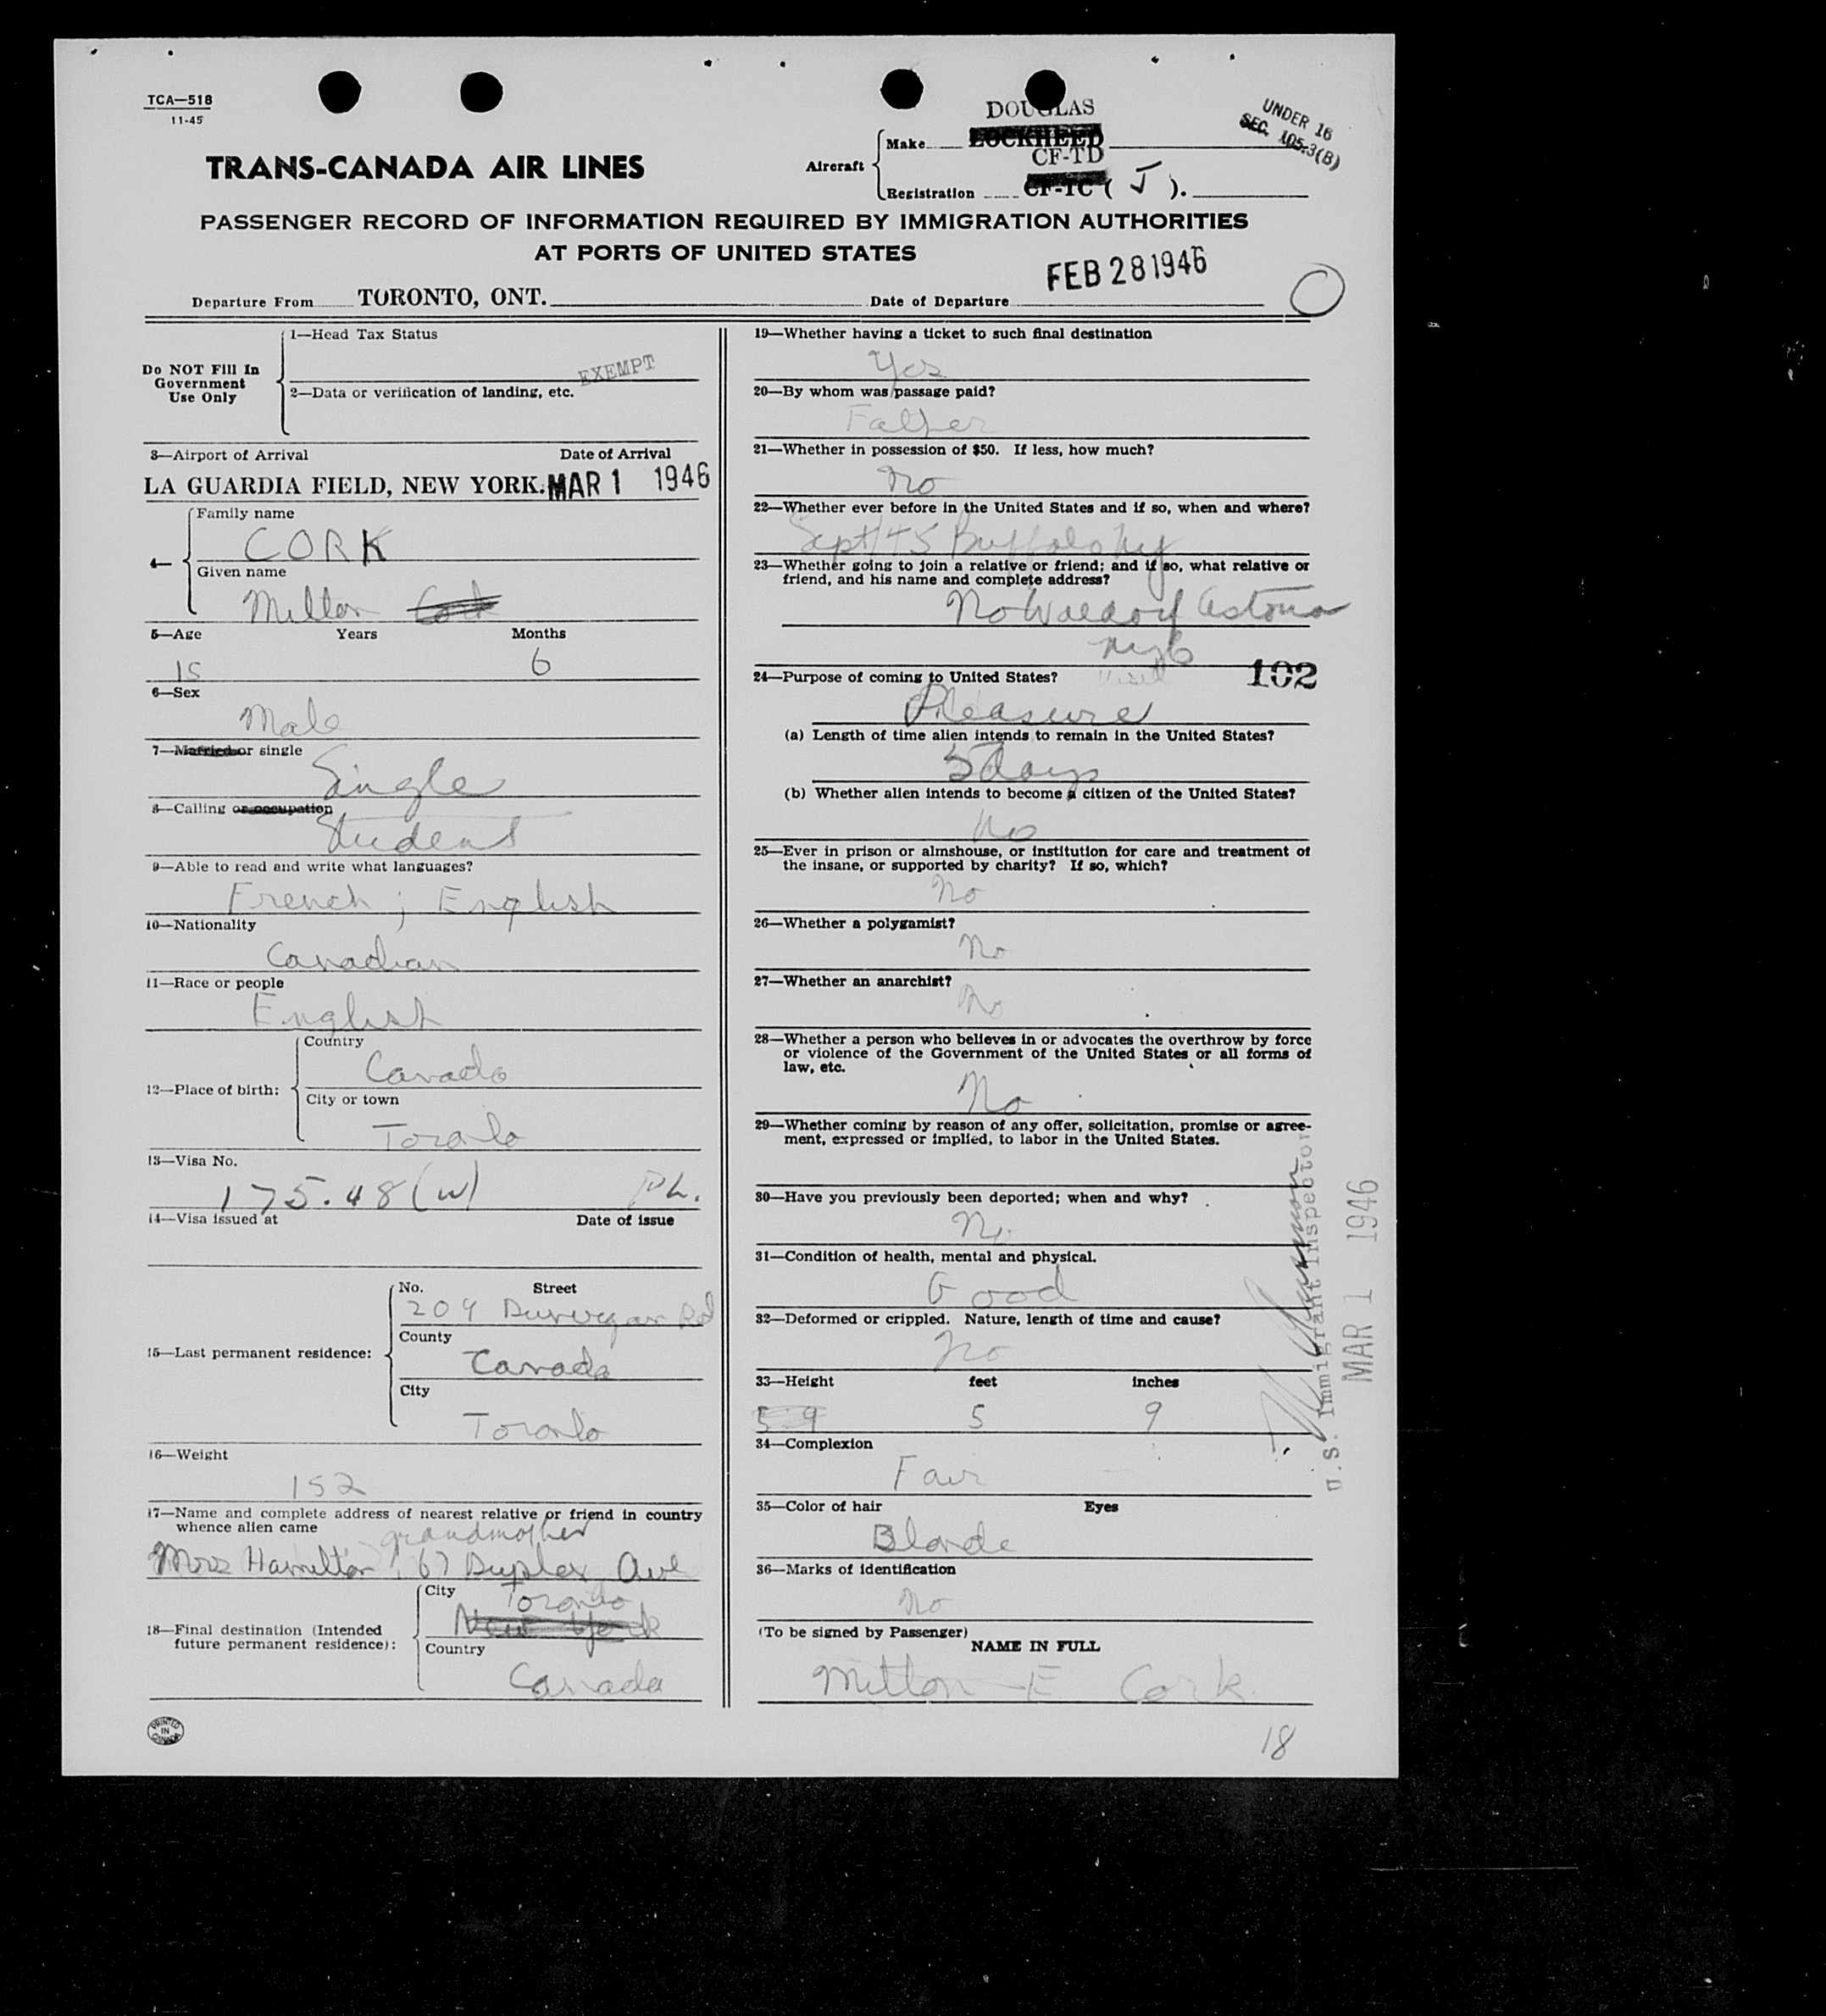 TCA—518
11-45
UNDER 16
SEC. 105.3(B)
TRANS-CANADA AIR LINES
Aircraft
DOUGLAS
Make LOCKHEED
CF-TD
Registration CF-TC ( J ).
PASSENGER RECORD OF INFORMATION REQUIRED BY IMMIGRATION AUTHORITIES
AT PORTS OF UNITED STATES
Departure From TORONTO, ONT. Date of Departure FEB 28 1946
Do NOT Fill In
Government
Use Only
1—Head Tax Status
EXEMPT
2—Data or verification of landing, etc.
3—Airport of Arrival Date of Arrival
LA GUARDIA FIELD, NEW YORK. MAR 1 1946
4—
Family name
CORK
Given name
Milton Cork
5—Age Years Months
15 6
6—Sex
Male
7—Married or single
Single
8—Calling or occupation
Student
9—Able to read and write what languages?
French ; English
10—Nationality
Canadian
11—Race or people
English
12—Place of birth:
Country
Canada
City or town
Toronto
13—Visa No.
175.48 (W) PL.
14—Visa issued at Date of issue
15—Last permanent residence:
No. Street
209 Dunvegan Rd
County
Canada
City
Toronto
16—Weight
152
17—Name and complete address of nearest relative or friend in country
whence alien came
grandmother
Mrs Hamilton 67 Duplex Ave
18—Final destination (Intended
future permanent residence):
City
Toronto
New York
Country
Canada
PRINTED
IN
CANADA
19—Whether having a ticket to such final destination
Yes
20—By whom was passage paid?
Father
21—Whether in possession of $50. If less, how much?
No
22—Whether ever before in the United States and if so, when and where?
Sept/45 Buffalo Ny
23—Whether going to join a relative or friend; and if so, what relative or
friend, and his name and complete address?
No Waldorf Astoria
nyc
102
24—Purpose of coming to United States? Visit
Pleasure
(a) Length of time alien intends to remain in the United States?
5 days
(b) Whether alien intends to become a citizen of the United States?
No
25—Ever in prison or almshouse, or institution for care and treatment of
the insane, or supported by charity? If so, which?
No
26—Whether a polygamist?
No
27—Whether an anarchist?
No
28—Whether a person who believes in or advocates the overthrow by force
or violence of the Government of the United States or all forms of
law, etc.
No
29—Whether coming by reason of any offer, solicitation, promise or agree-
ment, expressed or implied, to labor in the United States.
30—Have you previously been deported; when and why?
No
31—Condition of health, mental and physical.
Good
32—Deformed or crippled. Nature, length of time and cause?
No
33—Height feet inches
5 9 5 9
34—Complexion
Fair
35—Color of hair Eyes
Blonde
36—Marks of identification
No
(To be signed by Passenger)
NAME IN FULL
Milton E Cork
18
U.S. Immigrant Inspector
MAR 1 1946